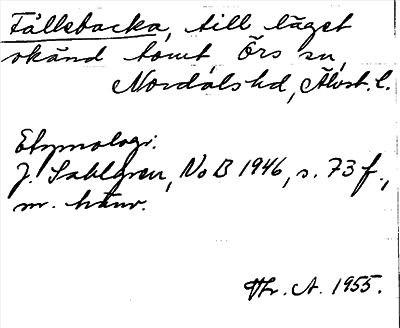 Fällebacka, till läget
okänd tomt Örs sn,
Nordals hd, Älvsb. l.
Etymologi:
J. Sahlgren, NoB 1946, s. 73 f.,
m. hänv.
A. 1955.